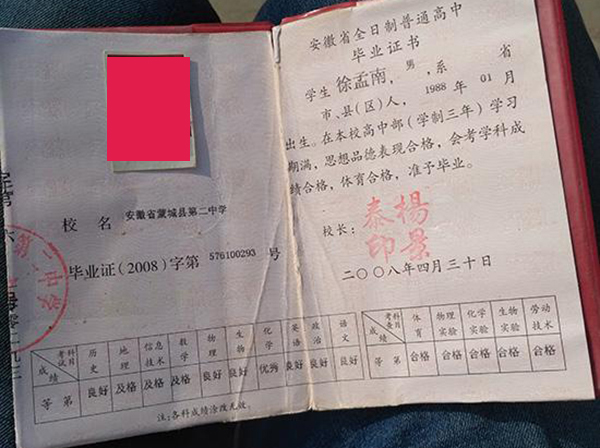 校 名 安徽省蒙城县第二中学
毕业证(2008)字第 576100293 号
成绩 考试科目 历史 地理 信息技术 数学 物理 生物 化学 英语 政治 语文
等 第 良好 及格 及格 及格 良好 良好 优秀 良好 良好 良好
注:各科成绩涂改无效。
二中学
安徽省全日制普通高中
毕业证书
学生 徐孟南,男,系 省
市、县(区)人,1988年01月
出生。在本校高中部(学制三年)学习
期满,思想品德表现合格,会考学科成
绩合格,体育合格,准予毕业。
校长:
楊景泰印
二〇〇八年四月三十日
成绩 考查科目 体育 物理实验 化学实验 生物实验 劳动技术
等 第 合格 合格 合格 合格 合格